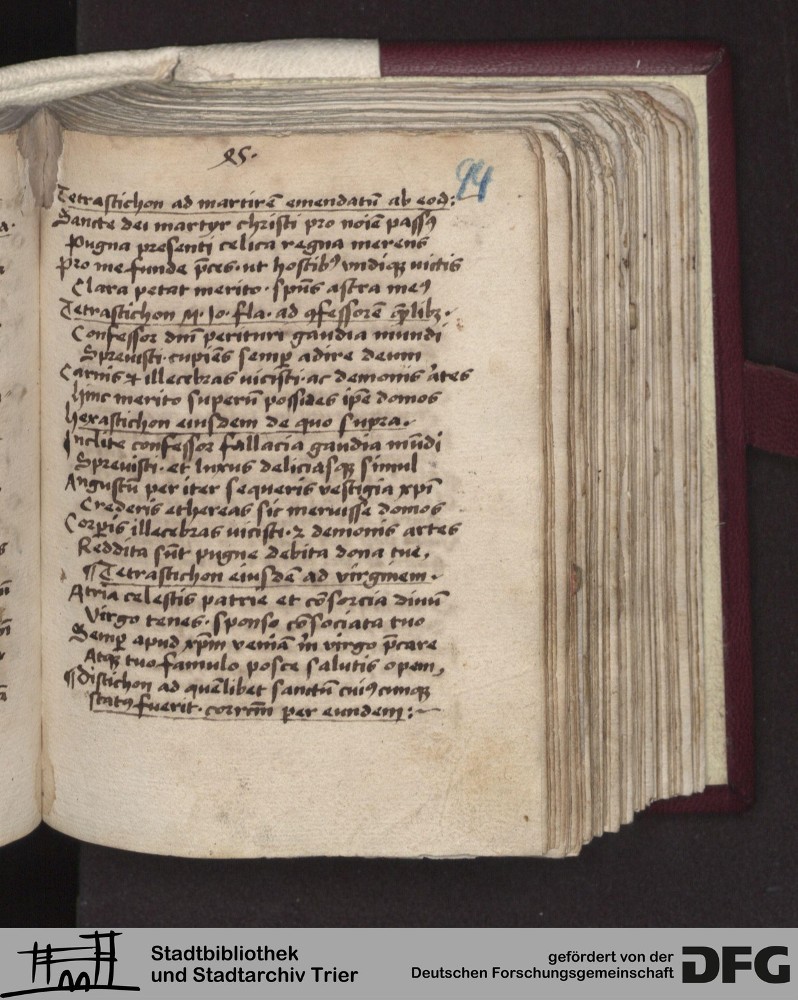 95.
94
Tetrastichon ad martirē emendatū ab eod:
Sancte dei martyr christi pro noīe passꝰ
Pugna presenti celica regna merens
Pro me funde p̄ces· ut hostibꝰ vndiqꝫ uictis
Clara petat merito· spūs astra meꝰ
Tetrastichon M. Jo. fla. ad ꝯfessorē q̄libꝫ·
Confessor dn̄i perituri gaudia mundi
Spreuisti· cupiēs semꝑ adire deum
Carnis & illecebras uicisti· ac demonis artes
Hinc merito superū possides ip̄e domos
Hexastichon eiusdem de quo supra.
Inclite confessor fallacia gaudia mūdi
Spreuisti· et luxus deliciasqꝫ simul
Angustū per iter sequeris vestigia xp̄i
Crederis ethereas sic meruisse domos
Corꝑis illecebras uicisti· ⁊ demonis artes
Reddita sūt pugne debita dona tue,
¶Tetrastichon eiusdē ad virginem·
Atria celestis patrie et cōsorcia diuū
Virgo tenes· sponso cōsociata tuo
Semꝑ apud xp̄m veniā m̄ virgo p̄care
Atqꝫ tuo famulo posce salutis opem,
¶Distichon ad quēlibet sanctū cuiꝰcunqꝫ
statꝰ fuerit· correm̄ per eundem:~
Stadtbibliothek
und Stadtarchiv Trier
gefördert von der
Deutschen Forschungsgemeinschaft
DFG